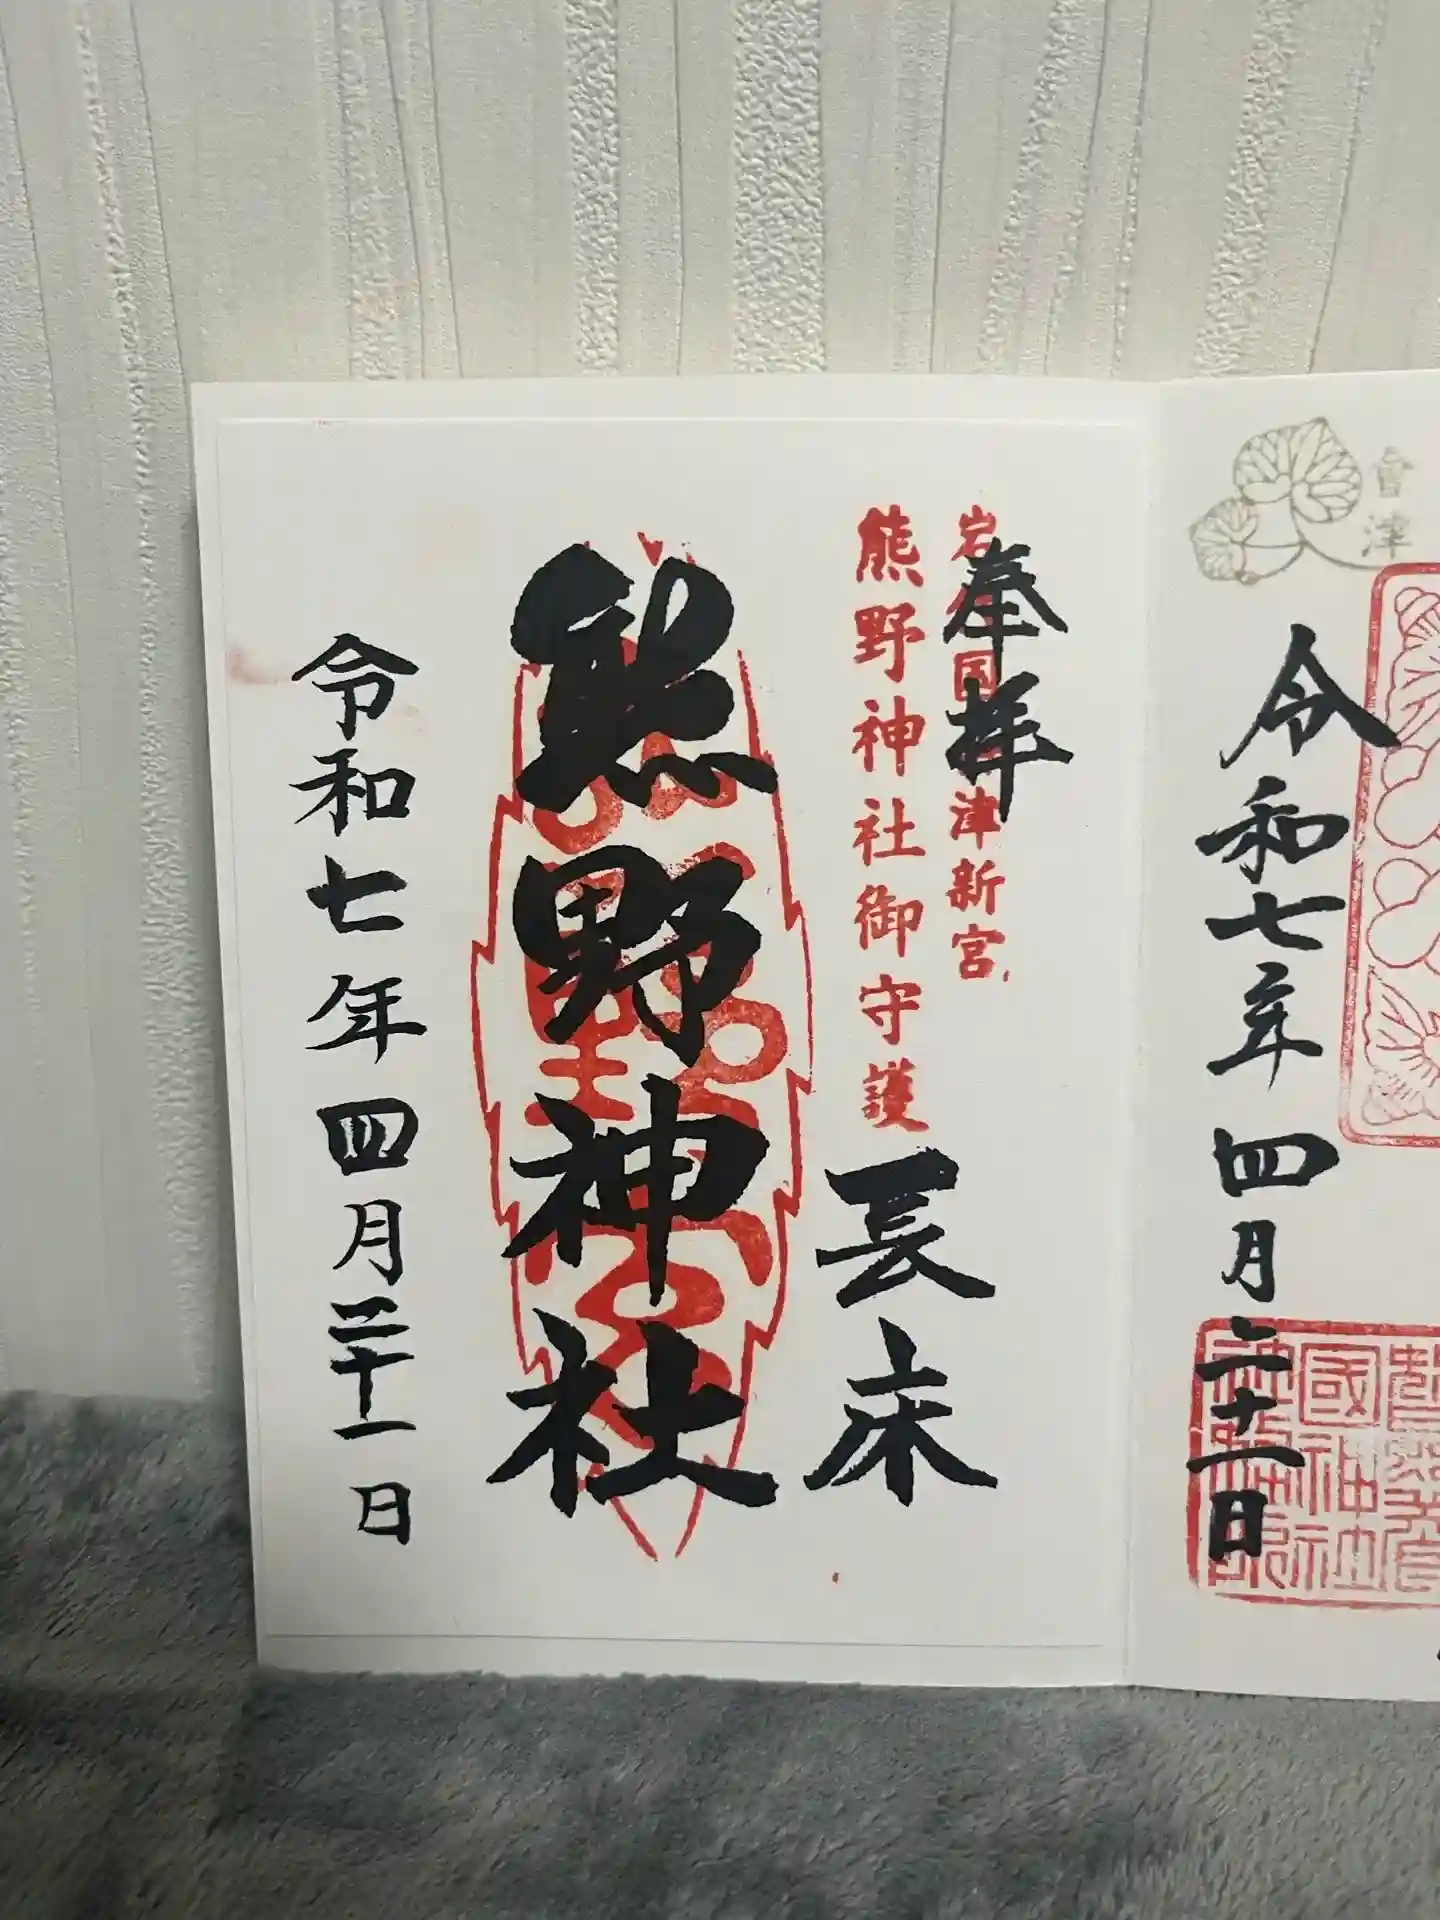 會津
令和七年四月二十一日
奉拝
岩代国会津新宮
熊野神社御守護
長床
熊野神社
令和七年四月二十一日